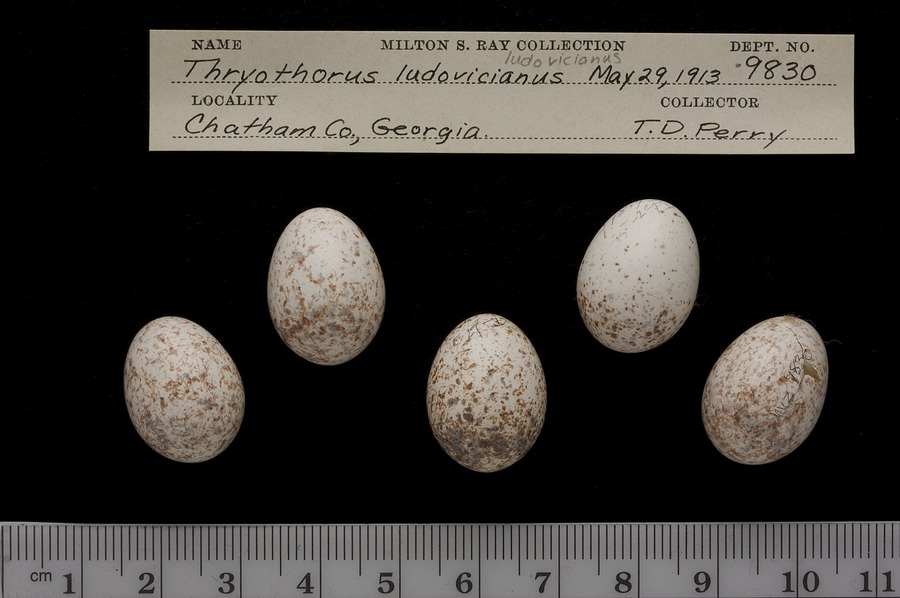 NAME MILTON S. RAY COLLECTION DEPT. NO.
ludovicianus
Thryothorus ludovicianus May 29, 1913 9830
LOCALITY COLLECTOR
Chatham Co., Georgia. T.D. Perry
cm 1 2 3 4 5 6 7 8 9 10 11